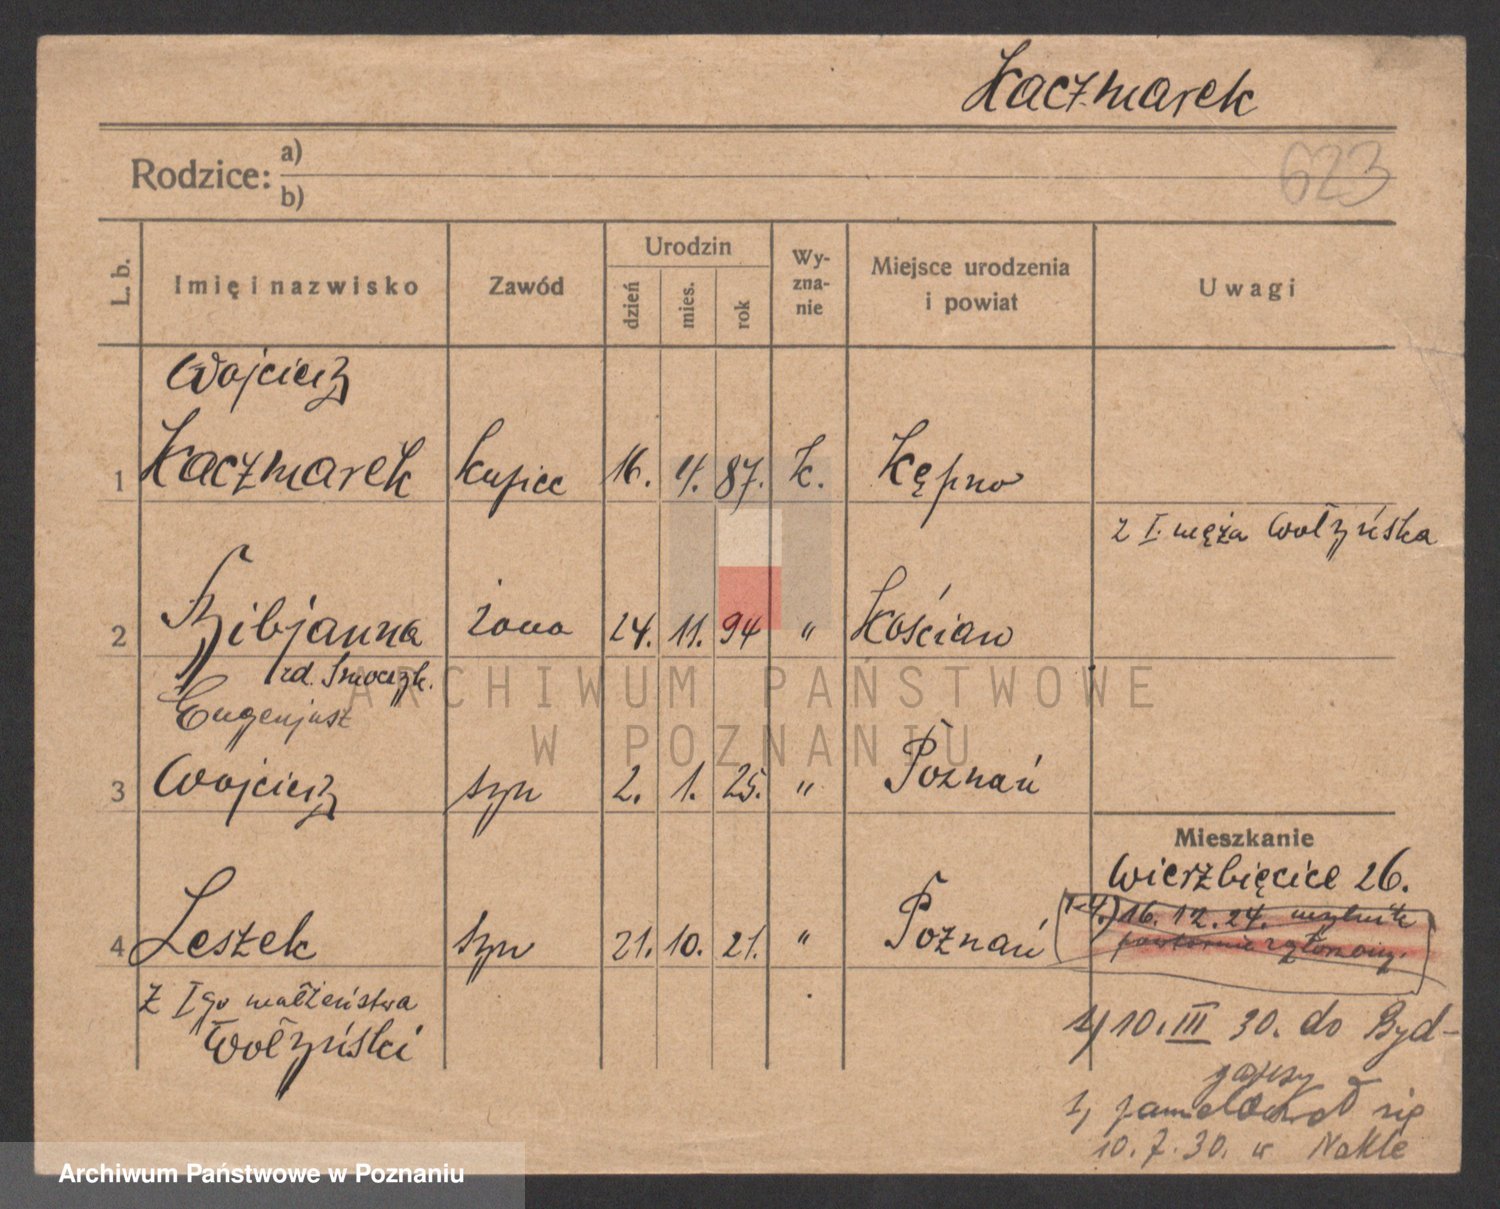 Kaczmarek
Rodzice: a)
b)
623
L. b.
Imię i nazwisko
Zawód
Urodzin
dzień
mies.
rok
Wy-
zna-
nie
Miejsce urodzenia
i powiat
Uwagi
Wojciech
1 Kaczmarek kupiec 16. 4. 87. k. Kępno
z I. męża Wołzyńska
2 Bibjanna żona 24. 11. 94 " Kościan
zd. Smoczyk.
Eugenjusz
3 Wojciech syn 2. 1. 25. " Poznań
Mieszkanie
Wierzbięcice 26.
1-4.) 16. 12. 24.
powtórnie
4 Leszek syn 21. 10. 21. " Poznań
z I go małżeństwa
Wołzyński
1) 10. III 30. do Byd-
goszy
1, się
10. 7. 30. w Nakle
ARCHIWUM PAŃSTWOWE
W POZNANIU
Archiwum Państwowe w Poznaniu